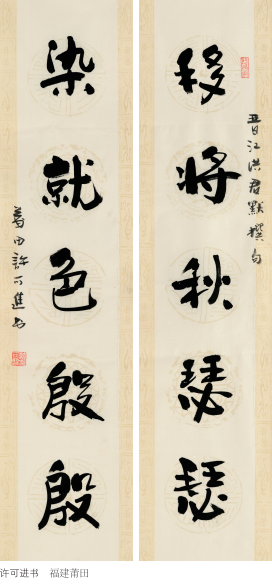 移将秋瑟瑟
晋江洪君默撰句
染就色殷殷
莆田许可進书
许可进书 福建莆田